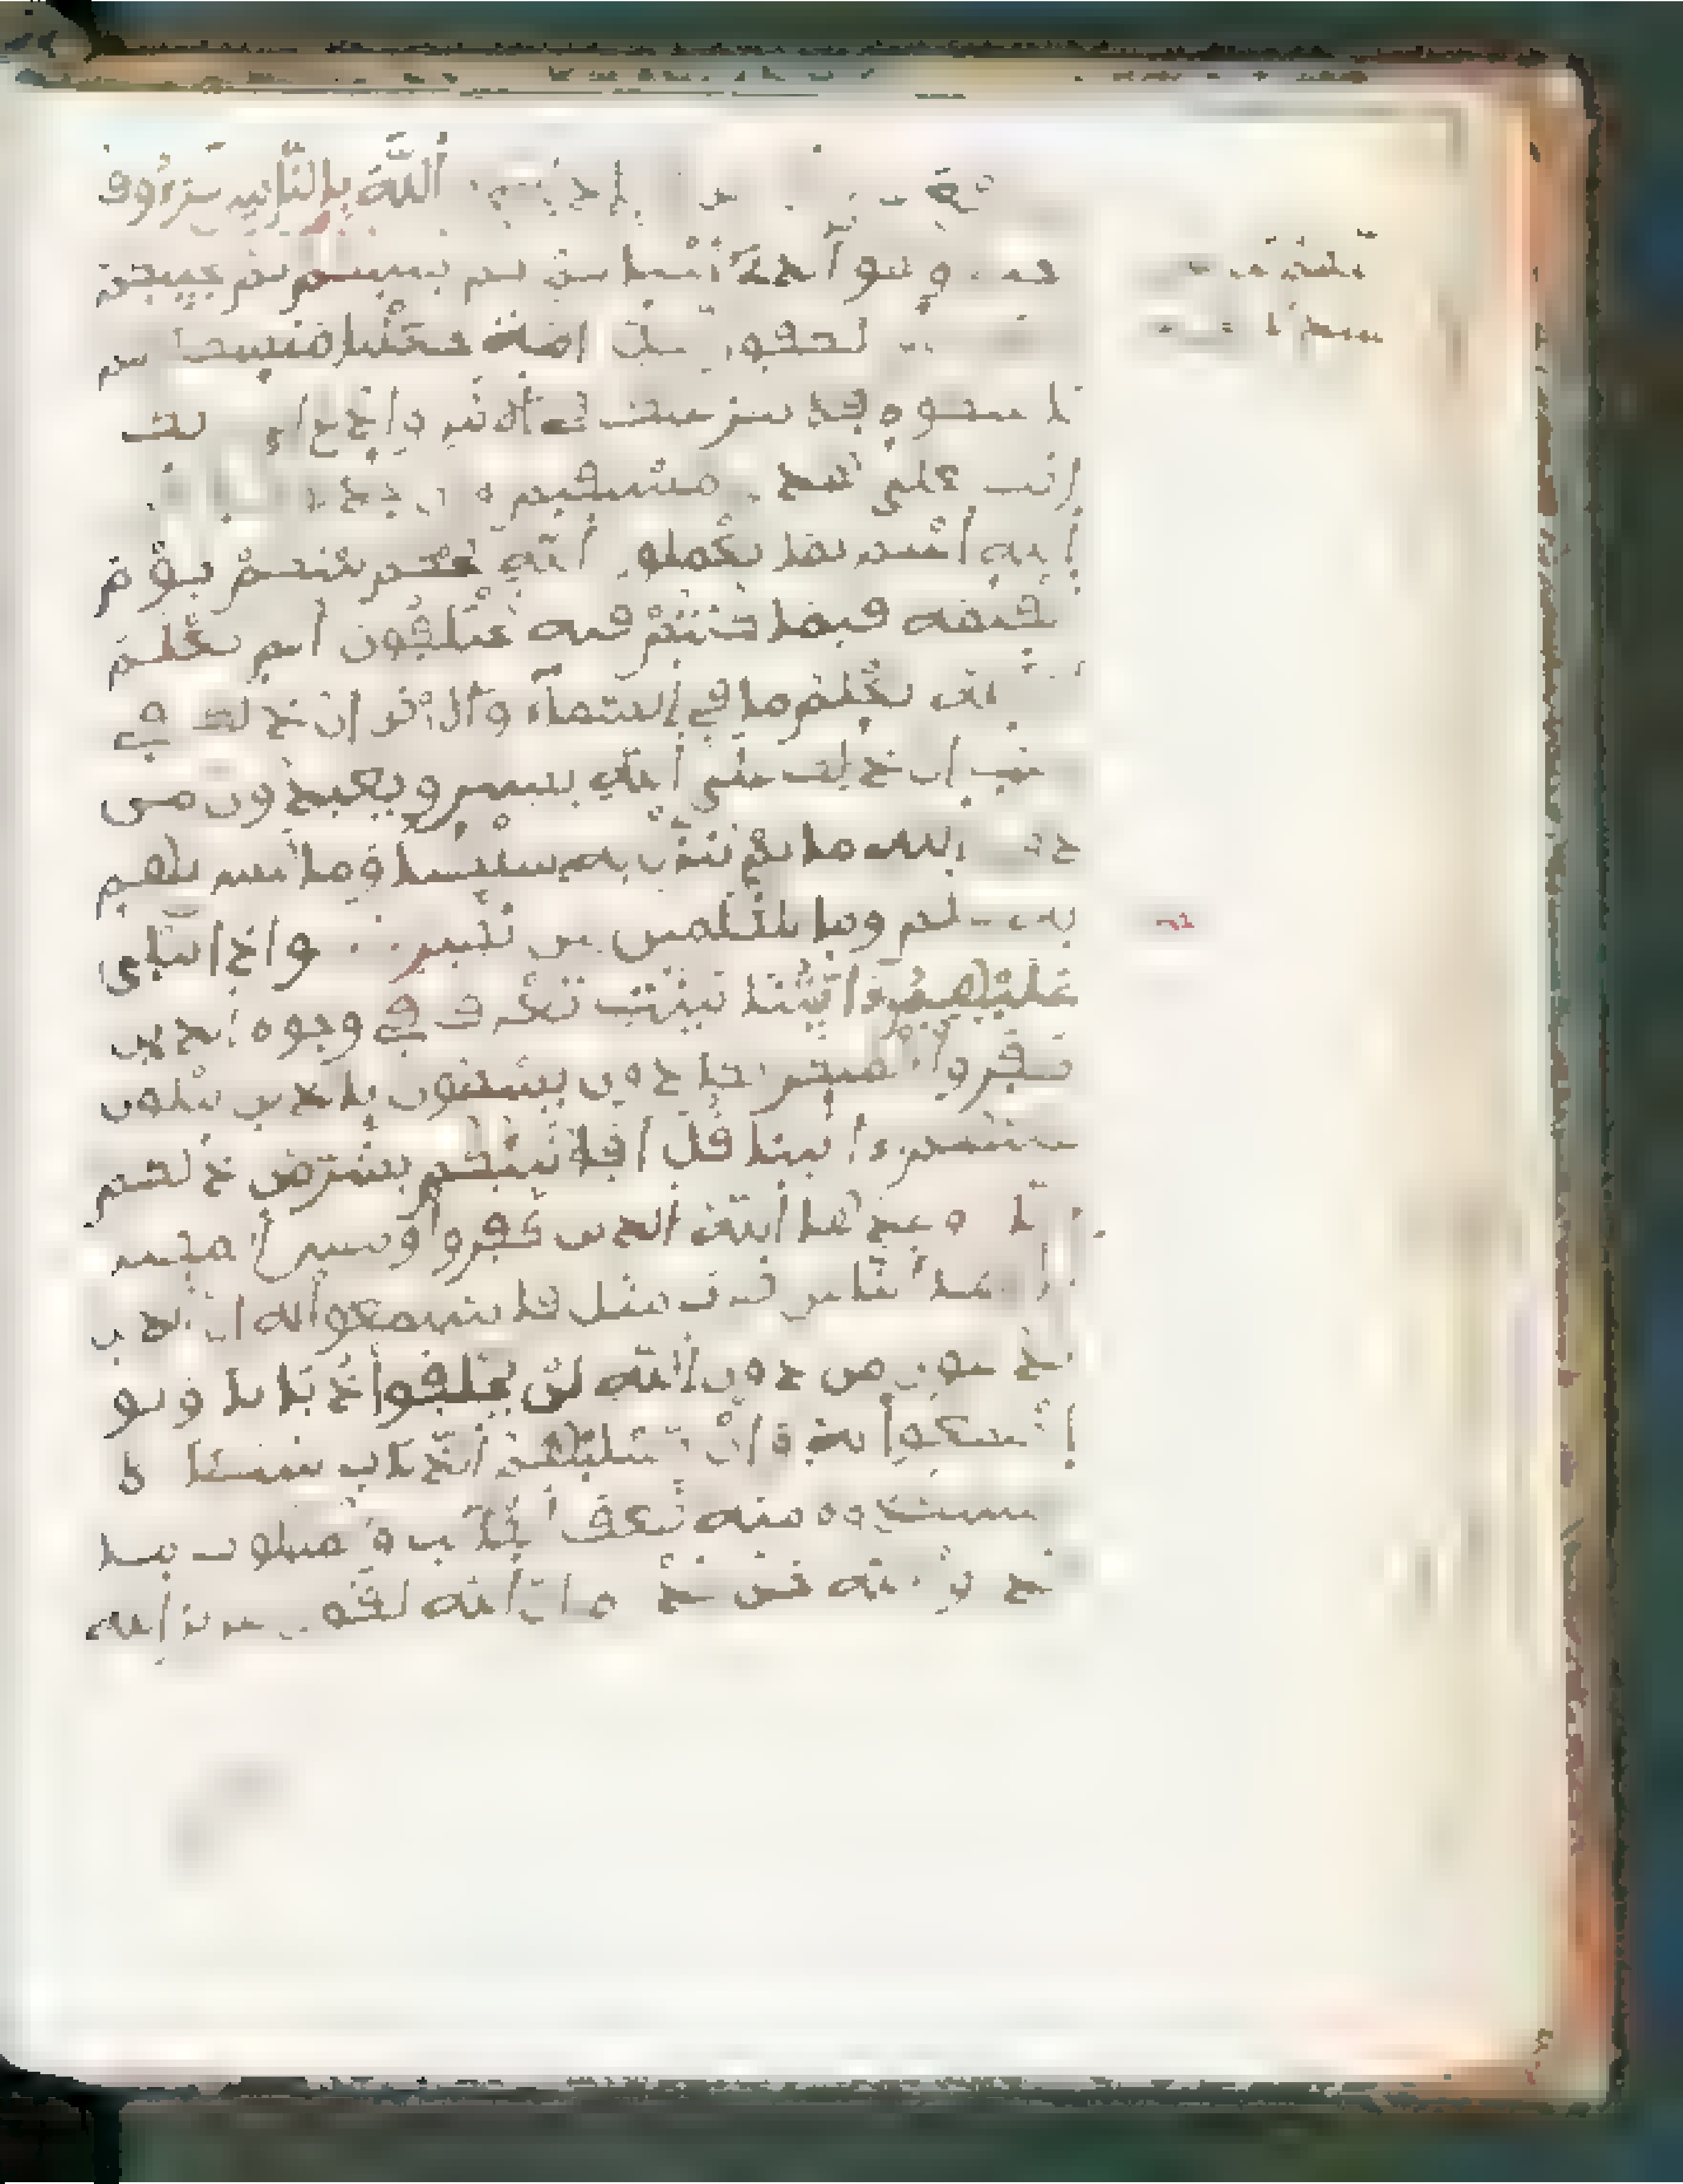 الله بالناس لرءوف
وهو الذي أحياكم ثم يميتكم ثم يحييكم
لكفور لكل أمة جعلنا منسكا هم
ناسكوه فلا ينزعنك في الأمر وادع إلى ربك
إنك لعلى هدى مستقيم
الله أعلم بما تعملون الله يحكم بينكم يوم
القيمة فيما كنتم فيه تختلفون ألم تعلم
أن الله يعلم ما في السماء والأرض إن ذلك في
كتب إن ذلك على الله يسير ويعبدون من
دون الله ما لم ينزل به سلطنا وما ليس لهم
به علم وما للظلمين من نصير وإذا تتلى
عليهم ءايتنا بينت تعرف في وجوه الذين
كفروا المنكر يكادون يسطون بالذين يتلون
عليهم ءايتنا قل أفأنبئكم بشر من ذلكم
النار وعدها الله الذين كفروا وبيس المصير
يأيها الناس ضرب مثل فاستمعوا له إن الذين
تدعون من دون الله لن يخلقوا ذبابا ولو
اجتمعوا له وإن يسلبهم الذباب شيئا لا
يستنقذوه منه ضعف الطالب والمطلوب ما
قدروا الله حق قدره إن الله لقوي عزيز الله